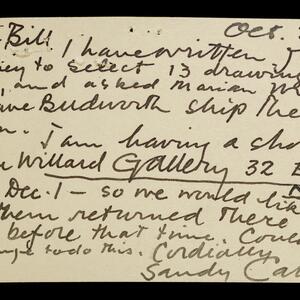 Oct.
Bill
I have written
to select 13 drawing
, and asked Marian
Budworth ship the
I am having a sho
Willard Gallery 32 E
Dec. 1 - so we would lik
them returned there
before that time. Coul
to do this. Cordially
Sandy Cal